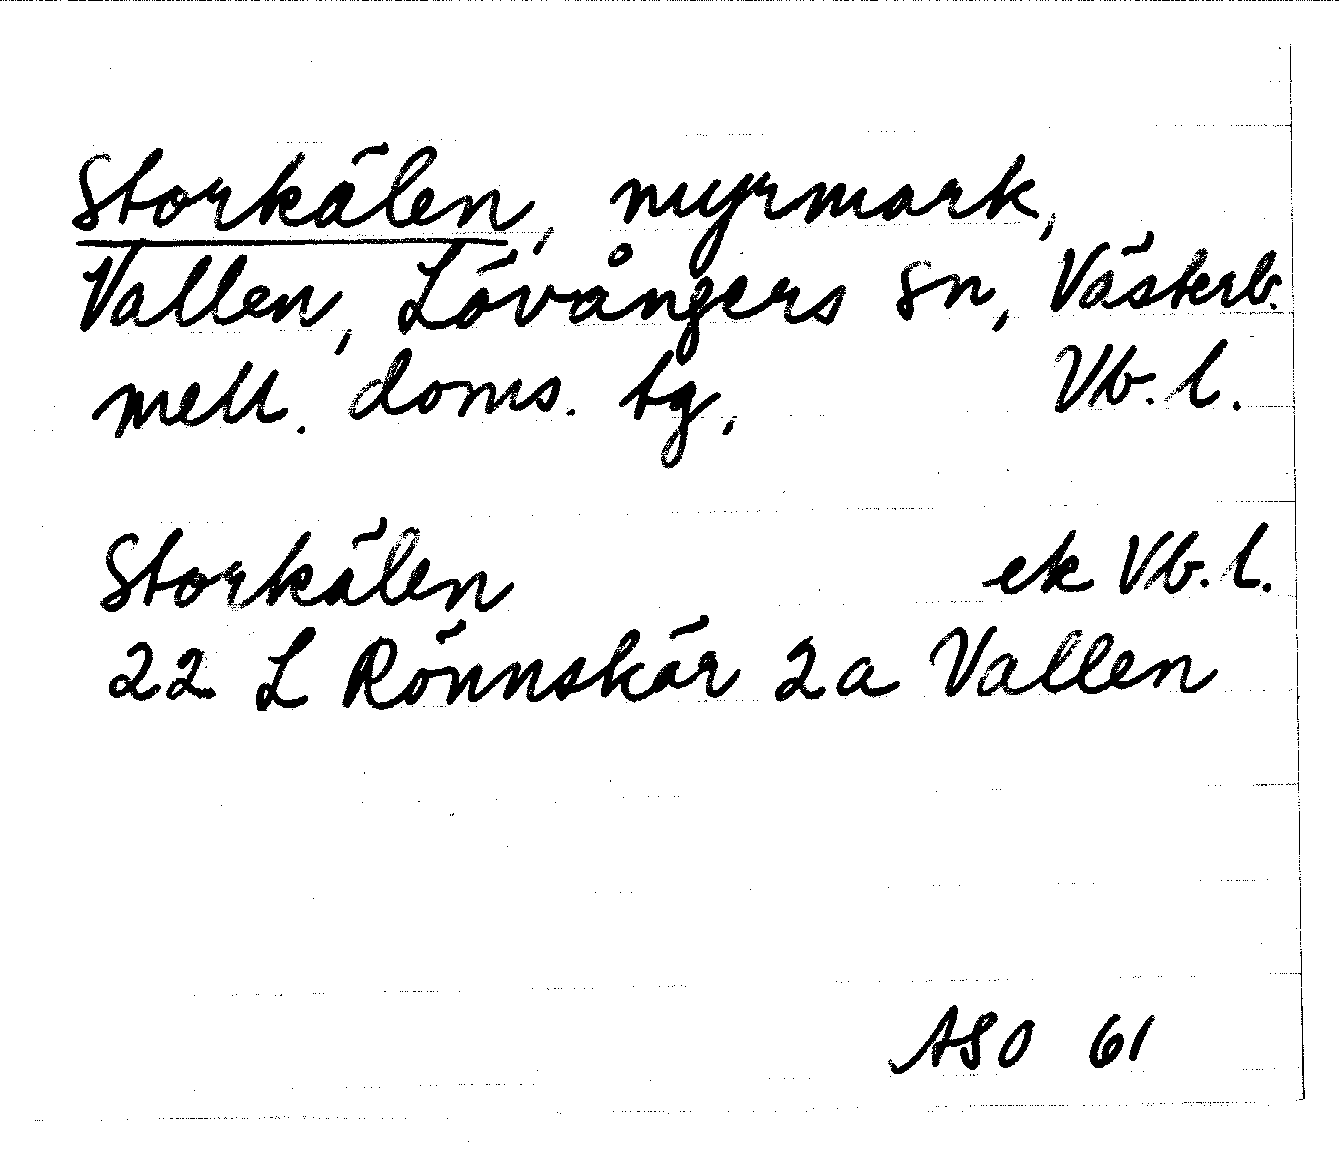 Storkälen, myrmark,
Vallen, Lövångers sn, Västerb.
mell. doms. tg, Vb. l.
Storkälen ek Vb. l.
22 L Rönnskär 2a Vallen
ASO 61